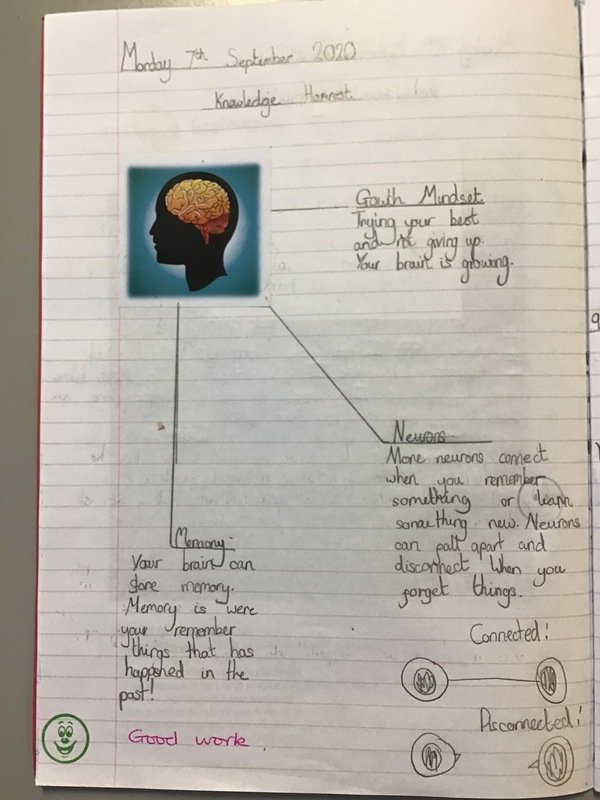 Monday 7th September 2020
Knowledge Harvest
Gowth Mindset
Trying your best
and not giving up.
Your brain is growing.
Neurons
More neurons connect
when you remember
something or learn
something new. Neurons
can pull apart and
disconnect when you
forget things.
Connected!
Disconnected!
Memory:
Your brain can
store memory.
Memory is were
your remember
things that has
happened in the
past!
Good work.